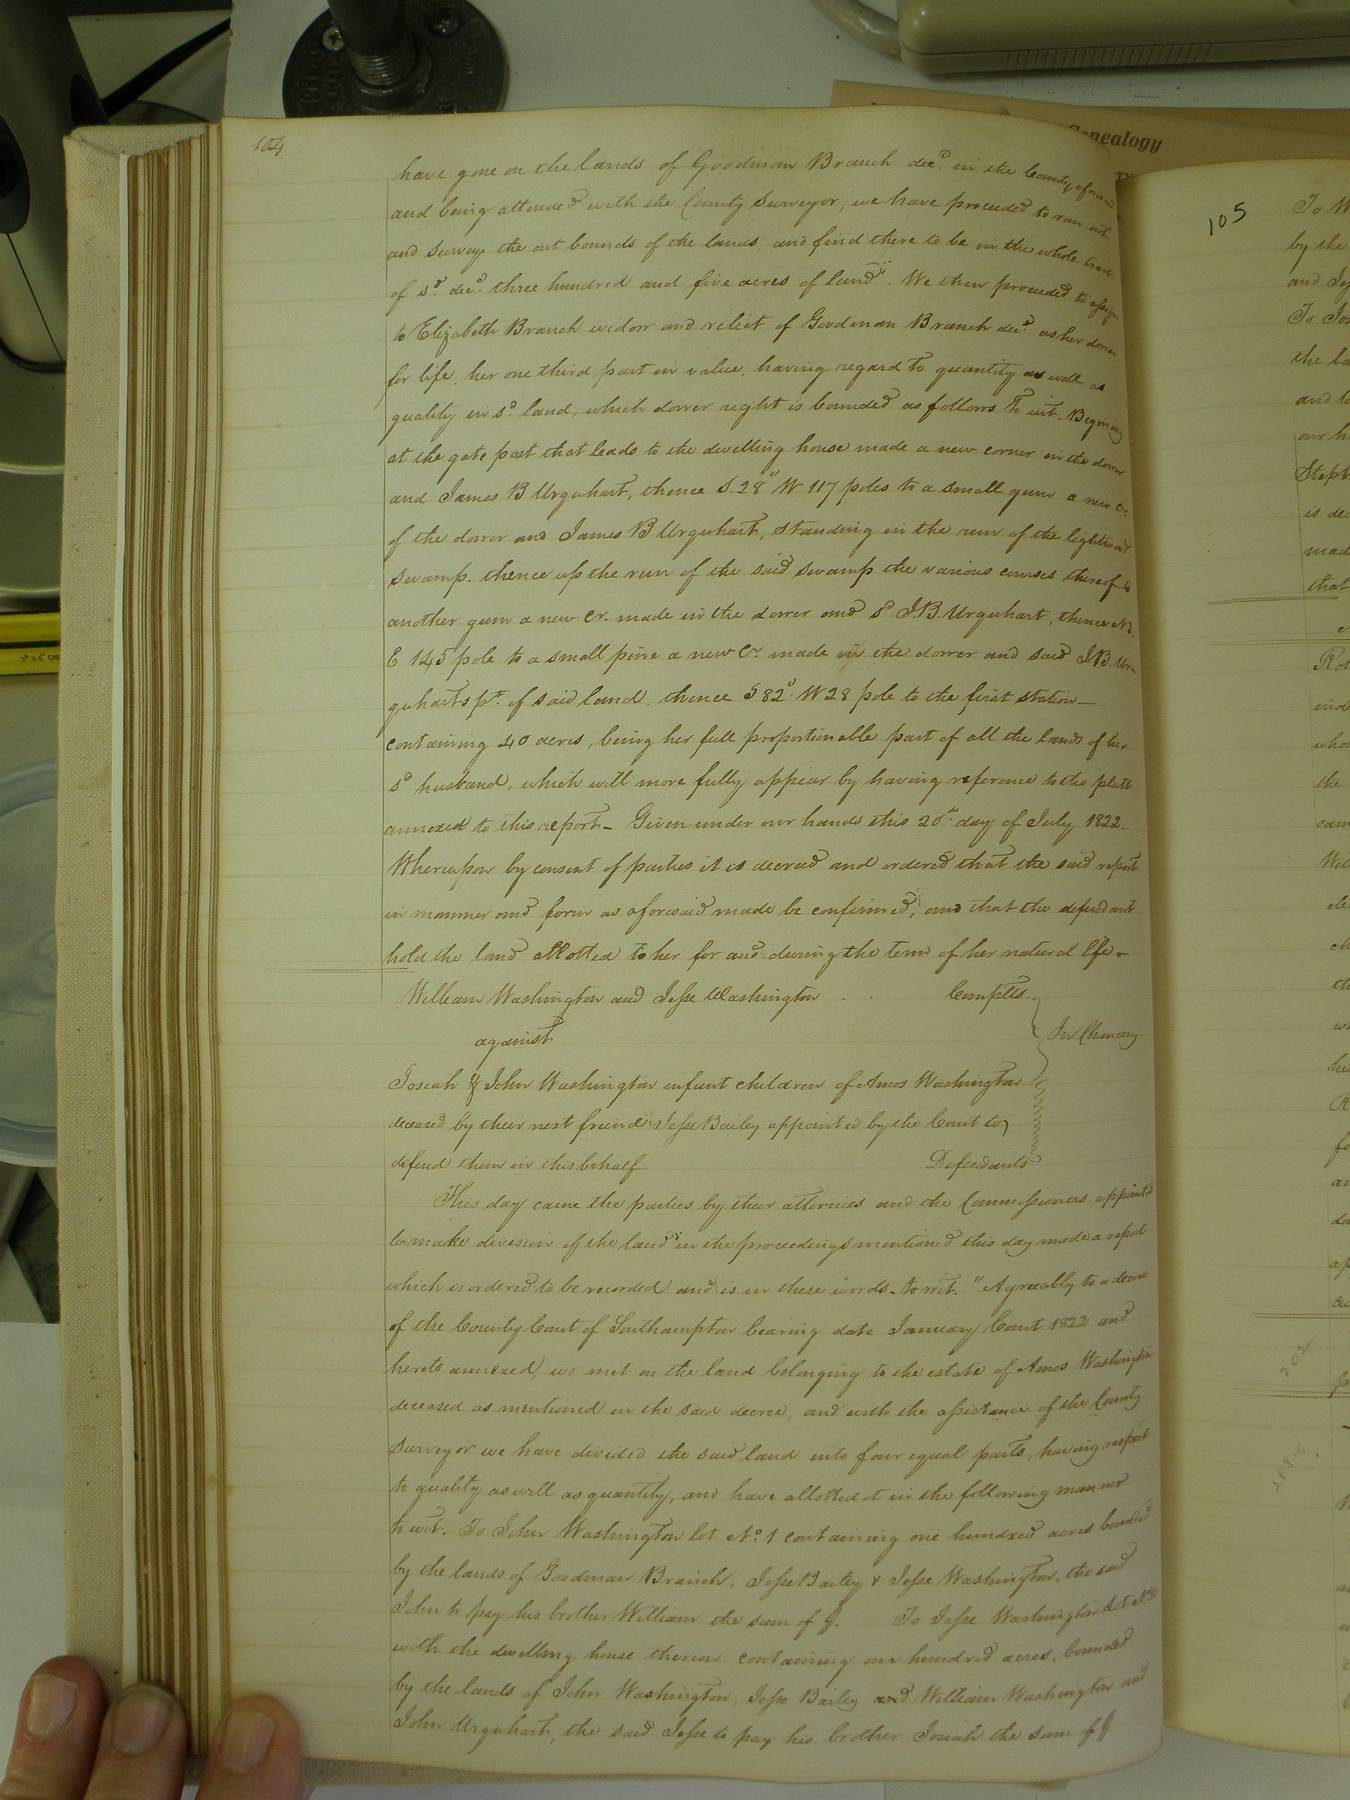 104
have gone on the lands of Goodman Branch decd. in the County
and being attended with the County Surveyor, we have proceeded to run out
and survey the out bounds of the lands and find there to be in the whole tract
of sd. decd. three hundred and five acres of land. We then proceeded to assign
to Elizabeth Branch widow and relict of Goodman Branch decd. as her dower
for life, her one third part in value, having regard to quantity as well as
quality in sd. land, which dower right is bounded as follows To wit. Beginning
at the gate post that leads to the dwelling house made a new corner in the dower
and James B Urquhart, thence S. 28° W 117 poles to a small gum a new Cr.
of the dower and James B Urquhart, standing in the run of the lightwood
swamp. thence up the run of the said swamp the various courses thereof to
another gum a new Cr. made in the dower and sd J.B. Urquhart, thence
E 145 pole to a small pine a new Cr. made in the dower and said J.B. Ur-
quharts pt. of said land. thence S 82° W 28 pole to the first station
containing 40 acres, being her full proportionable part of all the lands of her
sd husband, which will more fully appear by having reference to the platt
annexed to this report_ Given under our hands this 20th day of July 1822.
Whereupon by consent of parties it is decreed and ordered that the said report
in manner and form as aforesaid made be confirmed, and that the defendant
hold the land allotted to her for and during the term of her natural life-
William Washington and Jesse Washington . . Complts.
against
In Chancery
Josiah & John Washington infant children of Amos Washington
deceased by their next friend Jesse Bailey appointed by the Court to
defend them in this behalf Defendants
This day came the parties by their attornies and the Commissioners appointed
to make division of the land in the proceedings mentioned this day made a report
which is ordered to be recorded and is in these words- to wit. "Agreeably to a decree
of the County Court of Southampton bearing date January Court 1822 and
hereto annexed, we met on the land belonging to the estate of Amos Washington
deceased as mentioned in the said decree, and with the assistance of the County
Surveyor we have divided the said land into four equal parts, having respect
to quality as well as quantity, and have allotted it in the following manner
to wit. To John Washington lot No. 1 containing one hundred acres bounded
by the lands of Goodman Branch, Jesse Bailey & Jesse Washington, the said
John to pay his brother William the sum of $. To Jesse Washington Lot No
with the dwelling house thereon containing one hundred acres, bounded
by the lands of John Washington, Jesse Bailey and William Washington and
John Urquhart, the said Jesse to pay his brother Josiah the sum of $
Genealogy
105
To W
by the
and
To Jos
the la
and to
our h
Steph
is de
made
that
Ro
inde
whos
the
cam
Wil